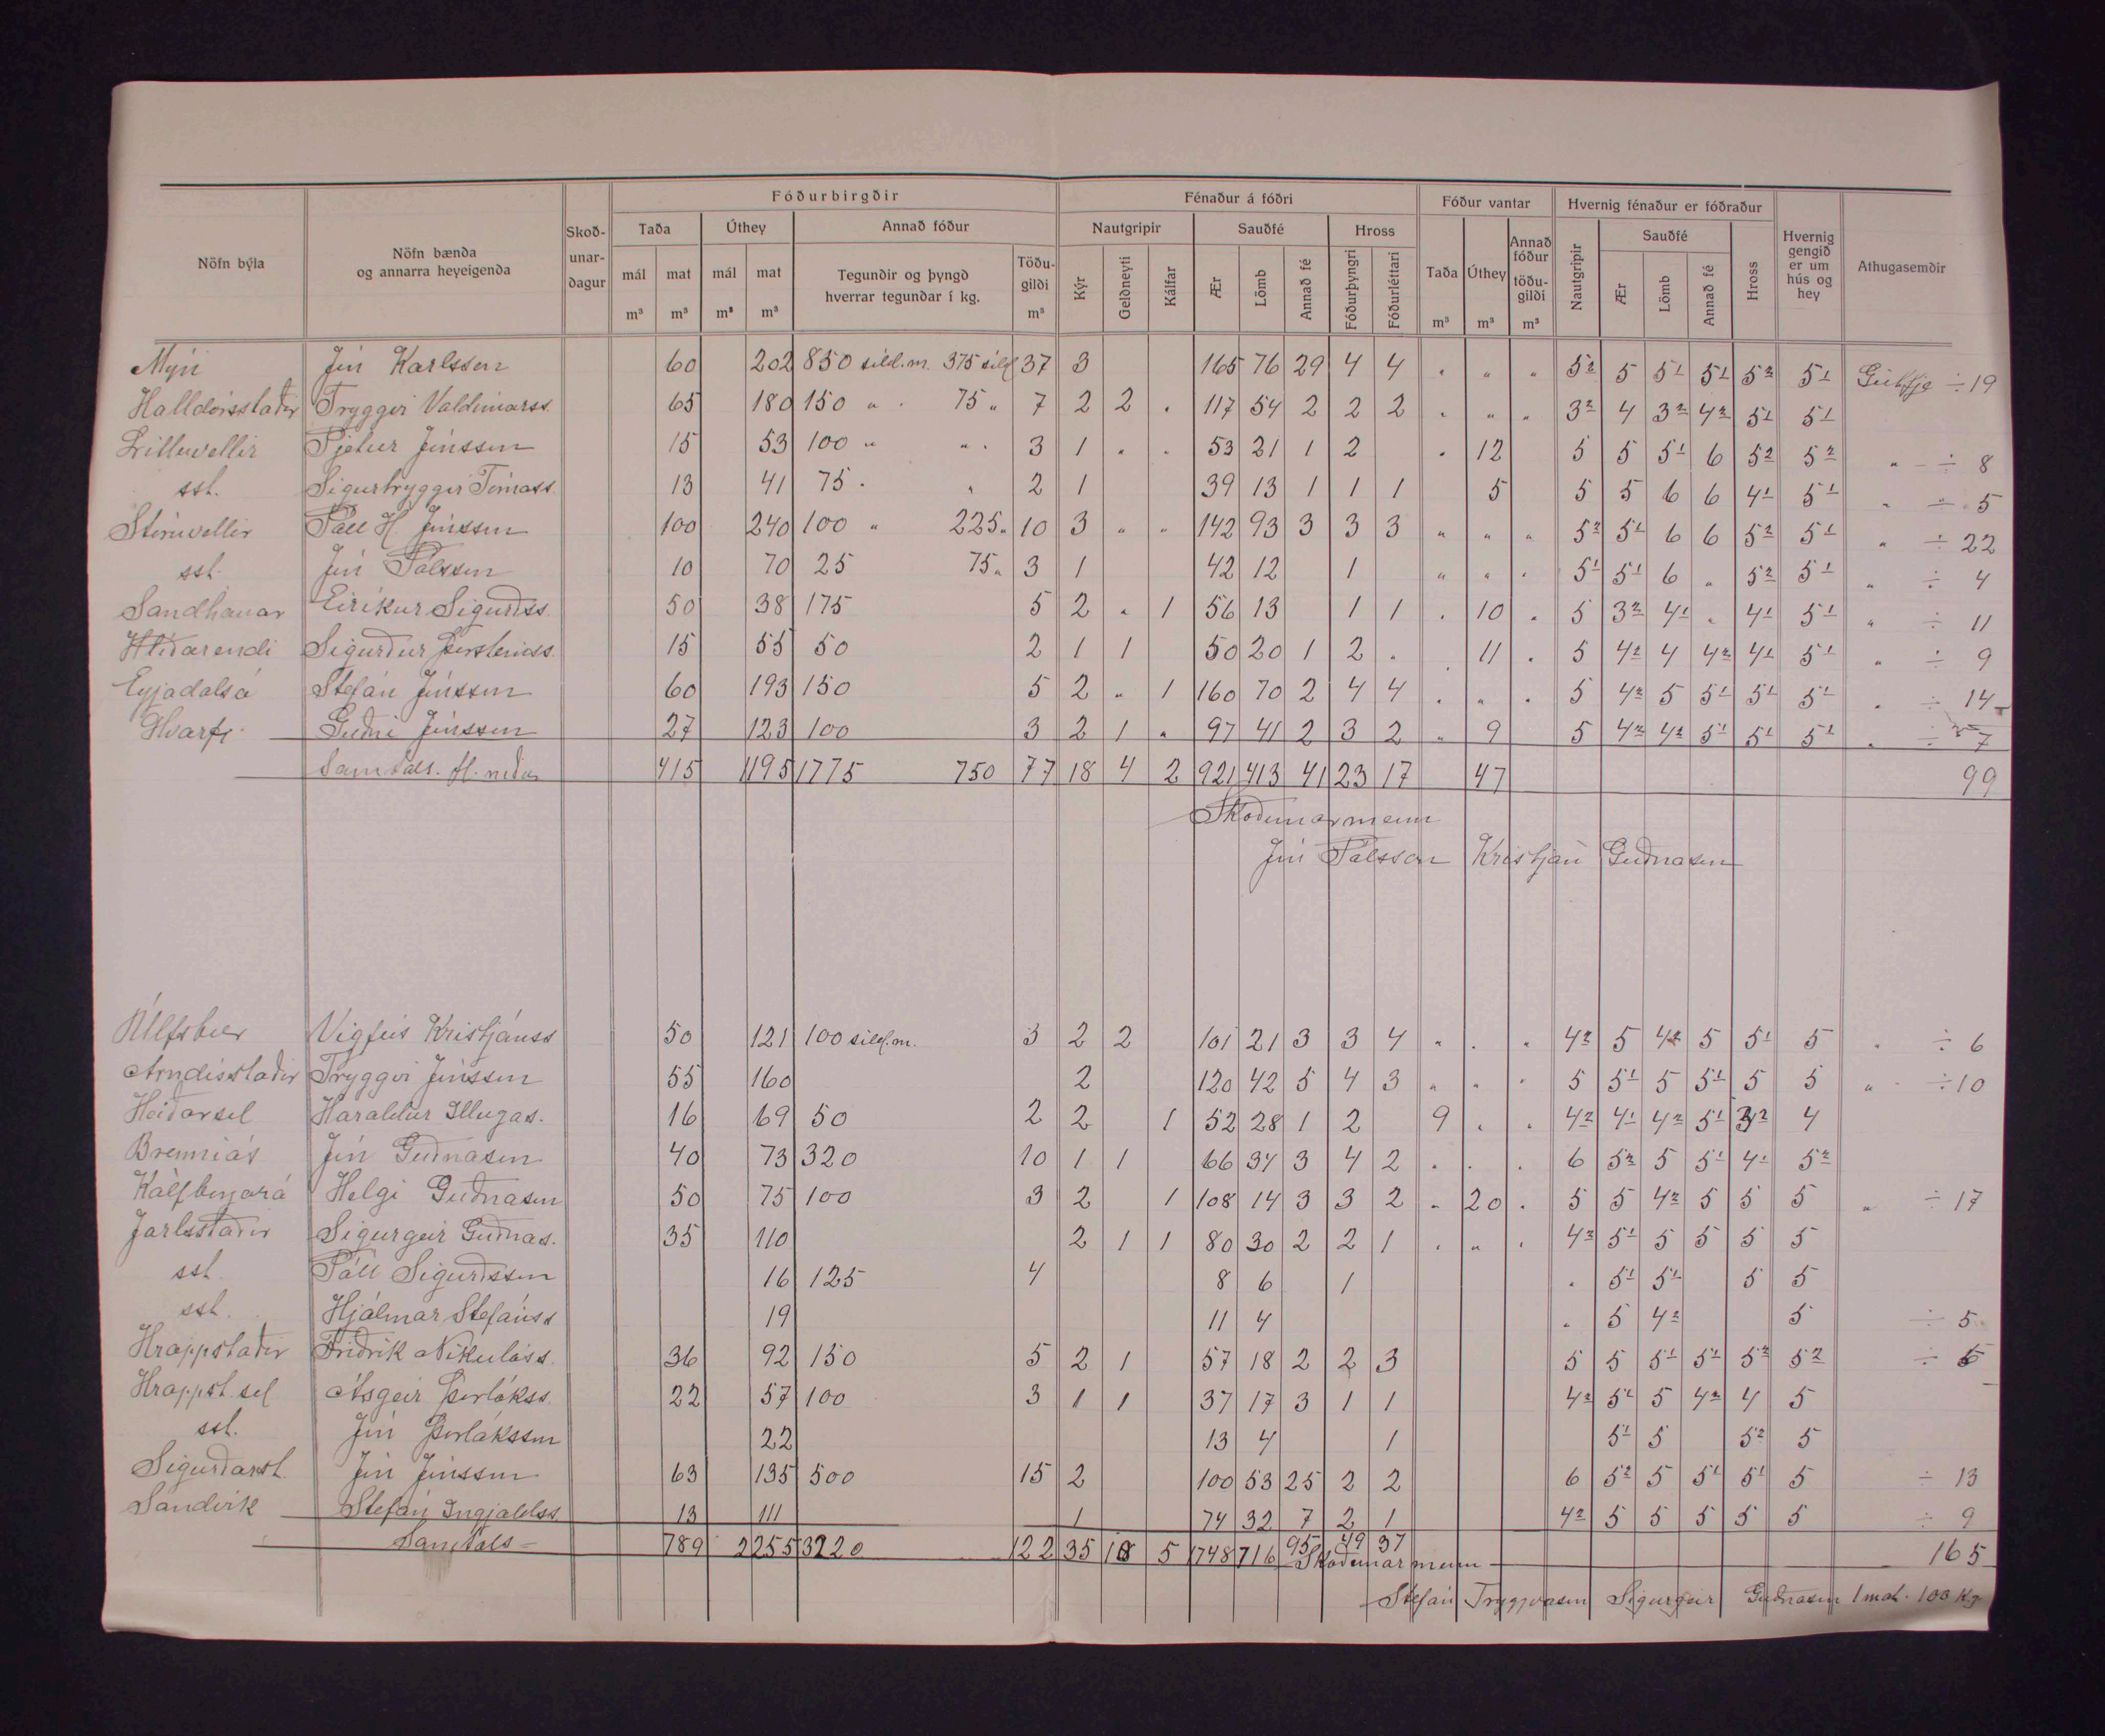 Fóðurbirgðir Fénaður á fóðri Fóður vantar Hvernig fénaður er fóðraður
Nöfn býla Nöfn bænda og annarra heyeigenda Skoð-unar-dagur Taða Úthey Annað fóður Nautgripir Sauðfé Hross Taða Úthey Annað fóður töðu-gildi Nautgripir Sauðfé Hross Hvernig gengið er um hús og hey Athugasemdir
mál mat mál mat Tegundir og þyngd hverrar tegundar í kg. Töðu-gildi Kýr Geldneyti Kálfar Ær Lömb Annað fé Fóðurþyngri Fóðurléttari Ær Lömb Annað fé
m³ m³ m³ m³ m³ m³ m³ m³
Mýri Jón Karlsson 60 202 850 síld.m. 375 síld 37 3 165 76 29 4 4 " " " 5² 5 5¹ 5¹ 5² 5¹ ÷ 19
Halldórsstaðir Tryggvi Valdimarss. 65 180 150 " . 75 " 7 2 2 . 117 54 2 2 2 . " " 3² 4 3² 4² 5¹ 5¹
Litluvellir Pjetur Jónsson 15 53 100 " " . 3 1 " . 53 21 1 2 . 12 5 5 5¹ 6 5² 5² " ÷ 8
sst. Sigurtryggvi Tómass. 13 41 75 . " 2 1 39 13 1 1 1 5 5 5 6 6 4¹ 5¹ " ÷ 5
Stóruvellir Páll H. Jónsson 100 240 100 " 225 " 10 3 " " 142 93 3 3 3 " " " 5² 5¹ 6 6 5² 5¹ " ÷ 22
sst. Jón Pálsson 10 70 25 75 " 3 1 42 12 1 " " . 5¹ 5¹ 6 " 5² 5¹ " ÷ 4
Sandhaugar Eiríkur Sigurðss. 50 38 175 5 2 " 1 56 13 1 1 . 10 . 5 3² 4¹ " 4¹ 5¹ " ÷ 11
Hlíðarendi Sigurður Þorsteinss. 15 55 50 2 1 1 50 20 1 2 . . 11 . 5 4² 4 4² 4¹ 5¹ " ÷ 9
Eyjadalsá Stefán Jónsson 60 193 150 5 2 " 1 160 70 2 4 4 . " . 5 4² 5 5¹ 5¹ 5¹ . ÷ 14
Hvarf Guðni Jónsson 27 123 100 3 2 1 " 97 41 2 3 2 " 9 5 4² 4² 5¹ 5¹ 5¹ . ÷ 7
Samtals. fl. neðar 415 1195 1775 750 77 18 4 2 921 413 41 23 17 47 99
Skoðunarmenn
Jón Pálsson Kristján Guðnason
Úlfsbær Vigfús Kristjánss 50 121 100 síld.m. 3 2 2 101 21 3 3 4 " . " 4² 5 4² 5 5¹ 5 " ÷ 6
Arndísstaðir Tryggvi Jónsson 55 160 2 120 42 5 4 3 " . . 5 5¹ 5 5¹ 5 5 " ÷ 10
Heiðarsel Haraldur Illugas. 16 69 50 2 2 1 52 28 1 2 9 . . 4² 4¹ 4² 5¹ 3² 4
Brenniás Jón Guðnason 40 73 320 10 1 1 66 34 3 4 2 . . . 6 5² 5 5¹ 4¹ 5²
Kálfborgará Helgi Guðnason 50 75 100 3 2 1 108 14 3 3 2 " 20 . 5 5 4² 5 5 5 " ÷ 17
Jarlsstaðir Sigurgeir Guðnas. 35 110 2 1 1 80 30 2 2 1 . " . 4² 5¹ 5 5 5 5
sst. Páll Sigurðsson 16 125 4 8 6 1 . 5¹ 5¹ 5 5
sst. Hjálmar Stefánss 19 11 4 . 5 4² 5 ÷ 5
Hrappstaðir Friðrik Nikuláss. 36 92 150 5 2 1 57 18 2 2 3 5 5 5¹ 5¹ 5² 5² ÷
Hrappst.sel Ásgeir Þorlákss. 22 57 100 3 1 1 37 17 3 1 1 4² 5¹ 5 4² 4 5
sst. Jón Þorláksson 22 13 4 1 5¹ 5 5² 5
Sigurðarst. Jón Jónsson 63 135 500 15 2 100 53 25 2 2 6 5² 5 5¹ 5¹ 5 ÷ 13
Sandvík Stefán Ingjaldss. 13 111 1 74 32 7 2 1 4² 5 5 5 5 5 ÷ 9
Samtals = 789 2255 3220 122 35 10 5 1748 716 95 49 37 165
Skoðunarmenn
Stefán Tryggvason Sigurgeir Guðnason 1 mat. 100 kg.